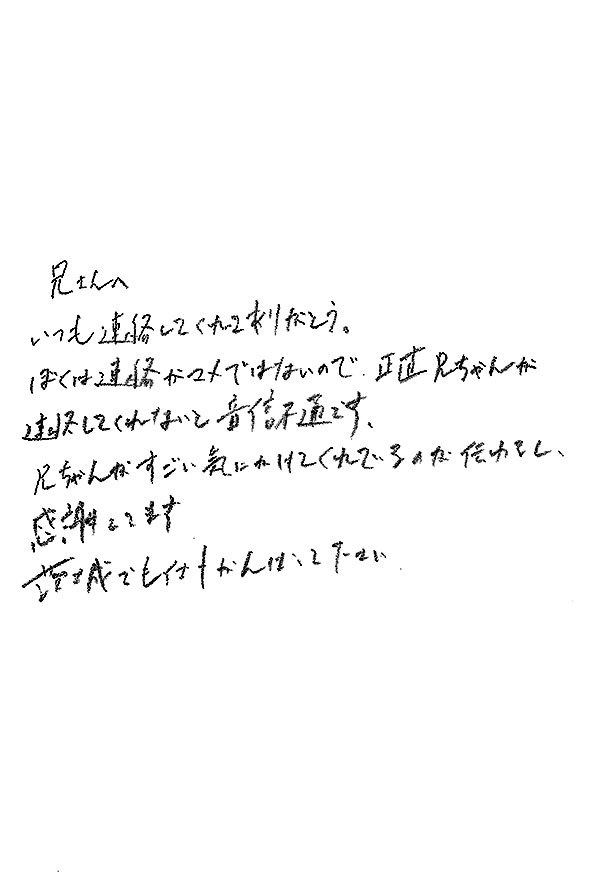 兄さんへ
いつも連絡してくれて有りがとう。
ぼくは連絡がマメではないので、正直兄ちゃんが
連絡してくれないと音信不通です、
兄ちゃんがすごい気にかけてくれているのが伝わるし、
感謝してます
茨城でも仕事がんばって下さい